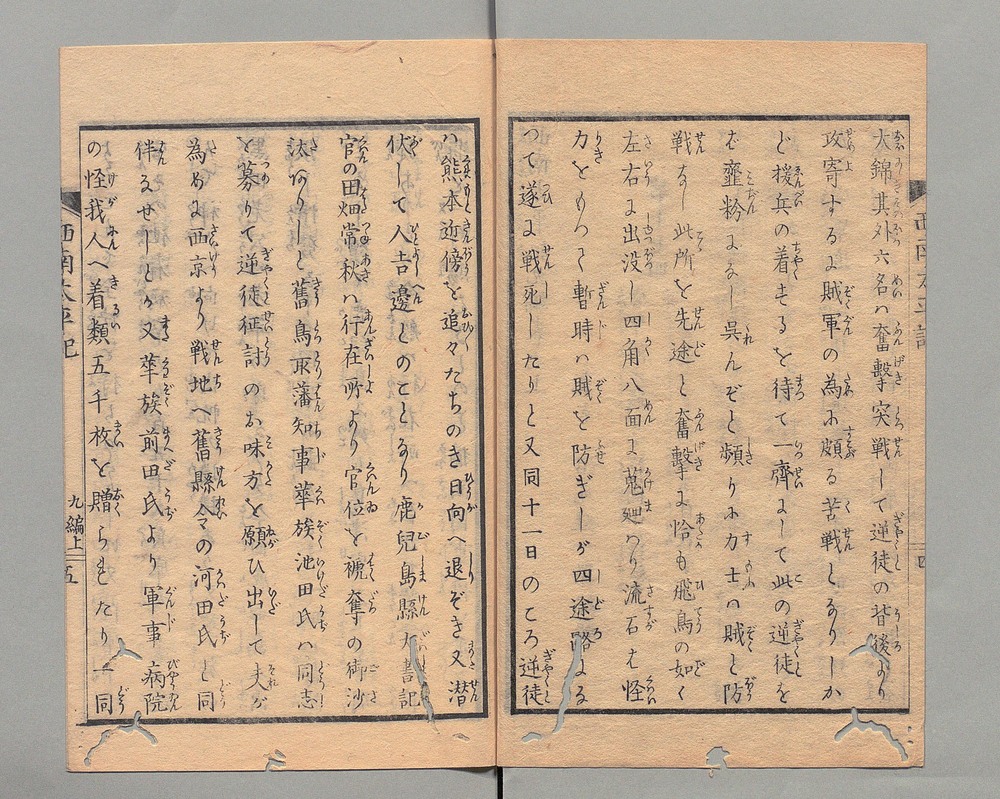 大錦其外六名ハ奮撃突戦して逆徒の背後より
攻寄するに賊軍の為に頗る苦戦となりしか
ど援兵の着するを待て一齊にして此の逆徒を
ば韲粉になし呉んぞと頻りに力士ハ賊と防
戦なし此所を先途と奮撃に恰も飛鳥の如く
左右に出没し四角八面に荒廻り流石は怪
力をもつて暫時ハ賊を防ぎしが四途路なる
つて遂に戦死したりと又同十一日のころ逆徒
西南太平記
四
ハ熊本近傍を追々たちのき日向へ退ぞき又潜
伏して人吉邊とのことなり鹿兒島縣大書記
官の田畑常秋ハ行在所より官位を褫奪の御沙
汰ありしと舊鳥取藩知事華族池田氏ハ同志
を募りて逆徒征討のお味方を願ひ出して夫が
為めに西京より戦地へ舊縣令の河田氏と同
伴なせしとか又華族前田氏より軍事病院
の怪我人へ着類五千枚を贈られたり一同
西南太平記
九編上
五